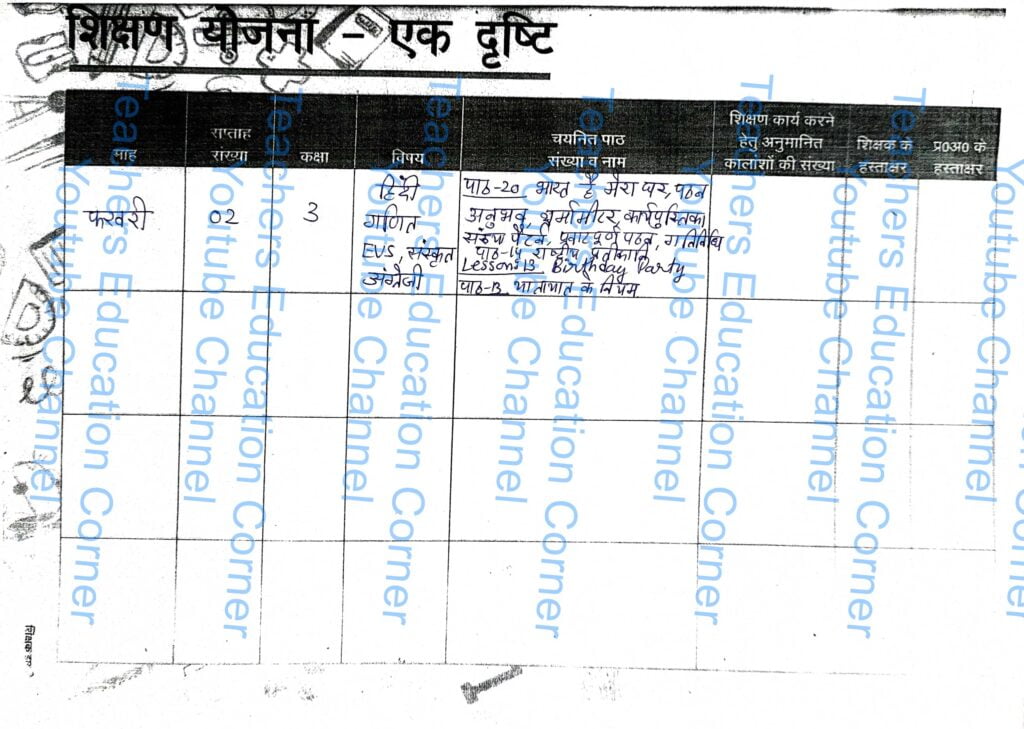 शिक्षण योजना - एक दृष्टि
माह
सप्ताह
संख्या
कक्षा
विषय
चयनित पाठ
संख्या व नाम
शिक्षण कार्य करने
हेतु अनुमानित
कालांशों की संख्या
शिक्षक के
हस्ताक्षर
प्र०अ० के
हस्ताक्षर
फरवरी
02
3
हिंदी
गणित
EVS, संस्कृत
अंग्रेजी
पाठ-20 भारत है मेरा घर, पठन
अनुभव, थर्मामीटर, कार्यपुस्तिका
संख्या पैटर्न, प्रवाहपूर्ण पठन, गतिविधि
पाठ-14 राष्ट्रीय प्रतीकानि
Lesson-13 Birthday Party
पाठ-13 यातायात के नियम
Teachers Education Corner
Youtube Channel
Teachers Education Corner
Youtube Channel
Teachers Education Corner
Youtube Channel
Teachers Education Corner
Youtube Channel
Teachers Education Corner
Youtube Channel
Teachers Education Corner
Youtube Channel